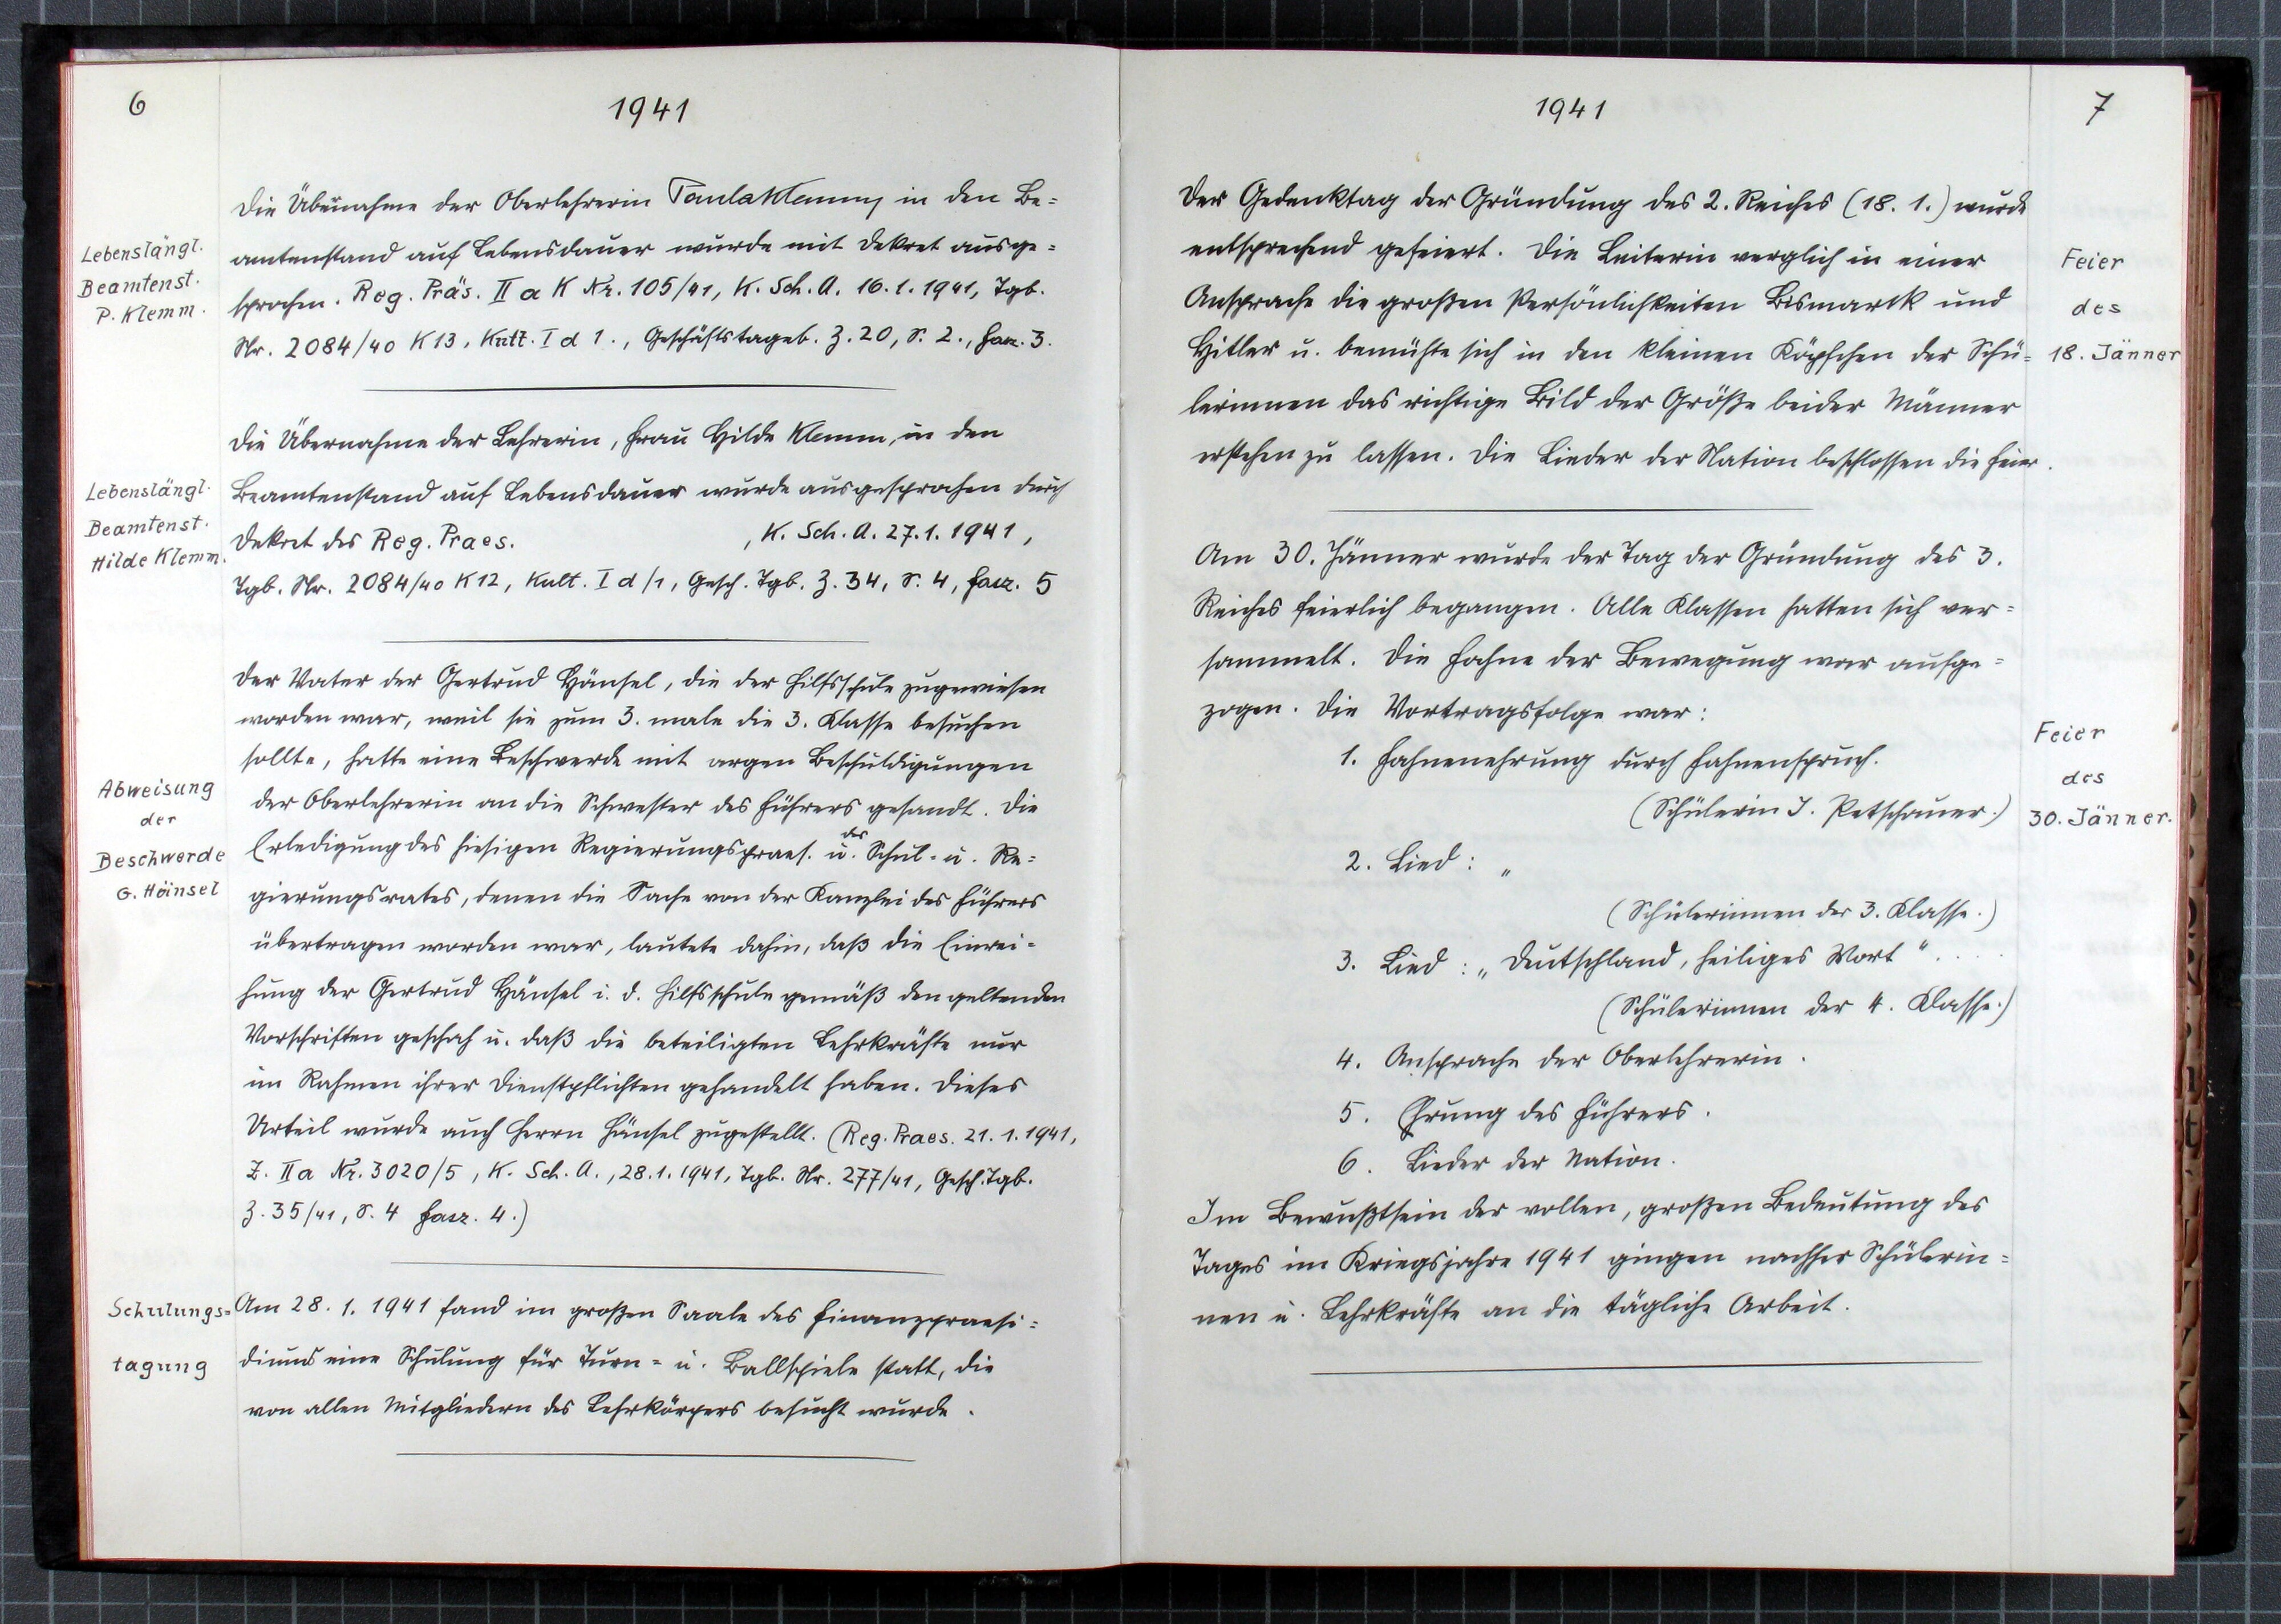 6
1941
Die Übernahme der Oberlehrerin Paula Klemm, in den Be=
amtenstand auf Lebensdauer wurde mit Dekret ausge=
sprochen. Reg. Präs. II a K Nr. 105/41, K. Sch. A. 16.1.1941, Tgb.
Nr. 2084/40 K13, Kult. I d 1., Geschäftstageb. Z. 20, S. 2., Fasz. 3.
Lebenslängl.
Beamtenst.
P. Klemm.
Die Übernahme der Lehrerin, Frau Hilde Klemm, in den
Beamtenstand auf Lebensdauer wurde ausgesprochen durch
Dekret des Reg. Praes. , K. Sch. A. 27.1.1941,
Tgb. Nr. 2084/40 K12, Kult. I d/1, Gesch. Tgb. Z. 34, S. 4, Fasz. 5
Lebenslängl.
Beamtenst.
Hilde Klemm.
Der Vater der Gertrud Hänsel, die der Hilfsschule zugewiesen
worden war, weil sie zum 3. male die 3. Klasse besuchen
sollte, hatte eine Beschwerde mit argen Beschuldigungen
der Oberlehrerin an die Schwester des Führers gesandt. Die
Erledigung des hiesigen Regierungspraes. u. des Schul- u. Re=
gierungsrates, denen die Sache von der Kanzlei des Führers
übertragen worden war, lautete dahin, daß die Einrei=
hung der Gertrud Hänsel i. d. Hilfsschule gemäß den geltenden
Vorschriften geschah u. daß die beteiligten Lehrkräfte nur
im Rahmen ihrer Dienstpflichten gehandelt haben. Dieses
Urteil wurde auch Herrn Hänsel zugestellt. (Reg. Praes. 21.1.1941,
Z. II a Nr. 3020/5, K. Sch. A., 28.1.1941, Tgb. Nr. 277/41, Gesch. Tgb.
Z. 35/41, S. 4 Fasz. 4.)
Abweisung
der
Beschwerde
G. Hänsel
Am 28. 1. 1941 fand im großen Saale des Finanzpraesi=
diums eine Schulung für Turn= u. Ballspiele statt, die
von allen Mitgliedern des Lehrkörpers besucht wurde.
Schulungs=
tagung
1941
7
Der Gedenktag der Gründung des 2. Reiches (18. 1.) wurde
entsprechend gefeiert. Die Leiterin verglich in einer
Ansprache die großen Persönlichkeiten Bismarck und
Hitler u. bemühte sich in den kleinen Köpfchen der Schü=
lerinnen das richtige Bild der Größe beider Männer
erstehen zu lassen. Die Lieder der Nation beschlossen die Feier.
Feier
des
18. Jänner
Am 30. Jänner wurde der Tag der Gründung des 3.
Reiches feierlich begangen. Alle Klassen hatten sich ver=
sammelt. Die Fahne der Bewegung war aufge=
zogen. Die Vortragsfolge war:
1. Fahnenehrung durch Fahnenspruch.
(Schülerin J. Petschauer.)
2. Lied: „
(Schülerinnen der 3. Klasse.)
3. Lied: „Deutschland, heiliges Wort“....
(Schülerinnen der 4. Klasse.)
4. Ansprache der Oberlehrerin.
5. Ehrung des Führers.
6. Lieder der Nation.
Im Bewußtsein der vollen, großen Bedeutung des
Tages im Kriegsjahre 1941 gingen nachher Schülerin=
nen u. Lehrkräfte an die tägliche Arbeit.
Feier
des
30. Jänner.